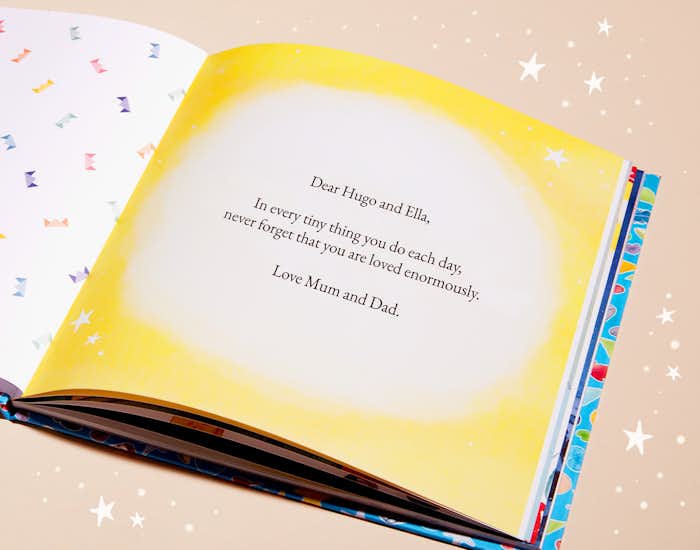 Dear Hugo and Ella,
In every tiny thing you do each day,
never forget that you are loved enormously.
Love Mum and Dad.